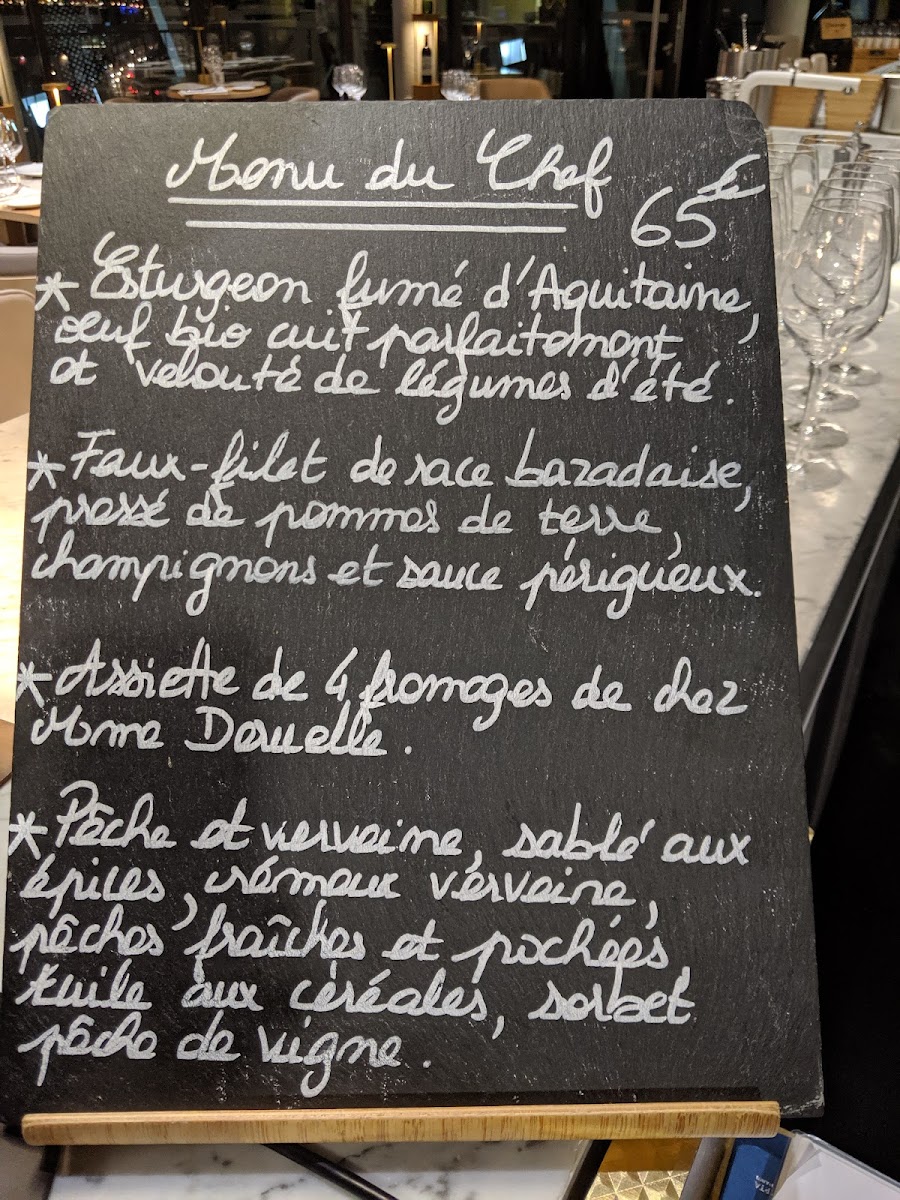 Menu du Chef
65€
* Esturgeon fumé d'Aquitaine,
œuf bio cuit parfaitement
et velouté de légumes d'été.
* Faux-filet de race bazadaise,
pressé de pommes de terre,
champignons et sauce périgueux.
* Assiette de 4 fromages de chez
Mme Deruelle.
* Pêche et verveine, sablé aux
épices, crémeux verveine,
pêches fraîches et pochées
tuile aux céréales, sorbet
pêche de vigne.